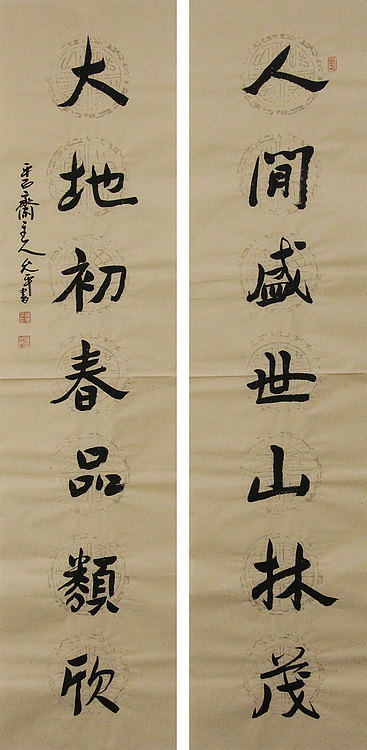 人間盛世山林茂
大地初春品類欣
齋主人允平書